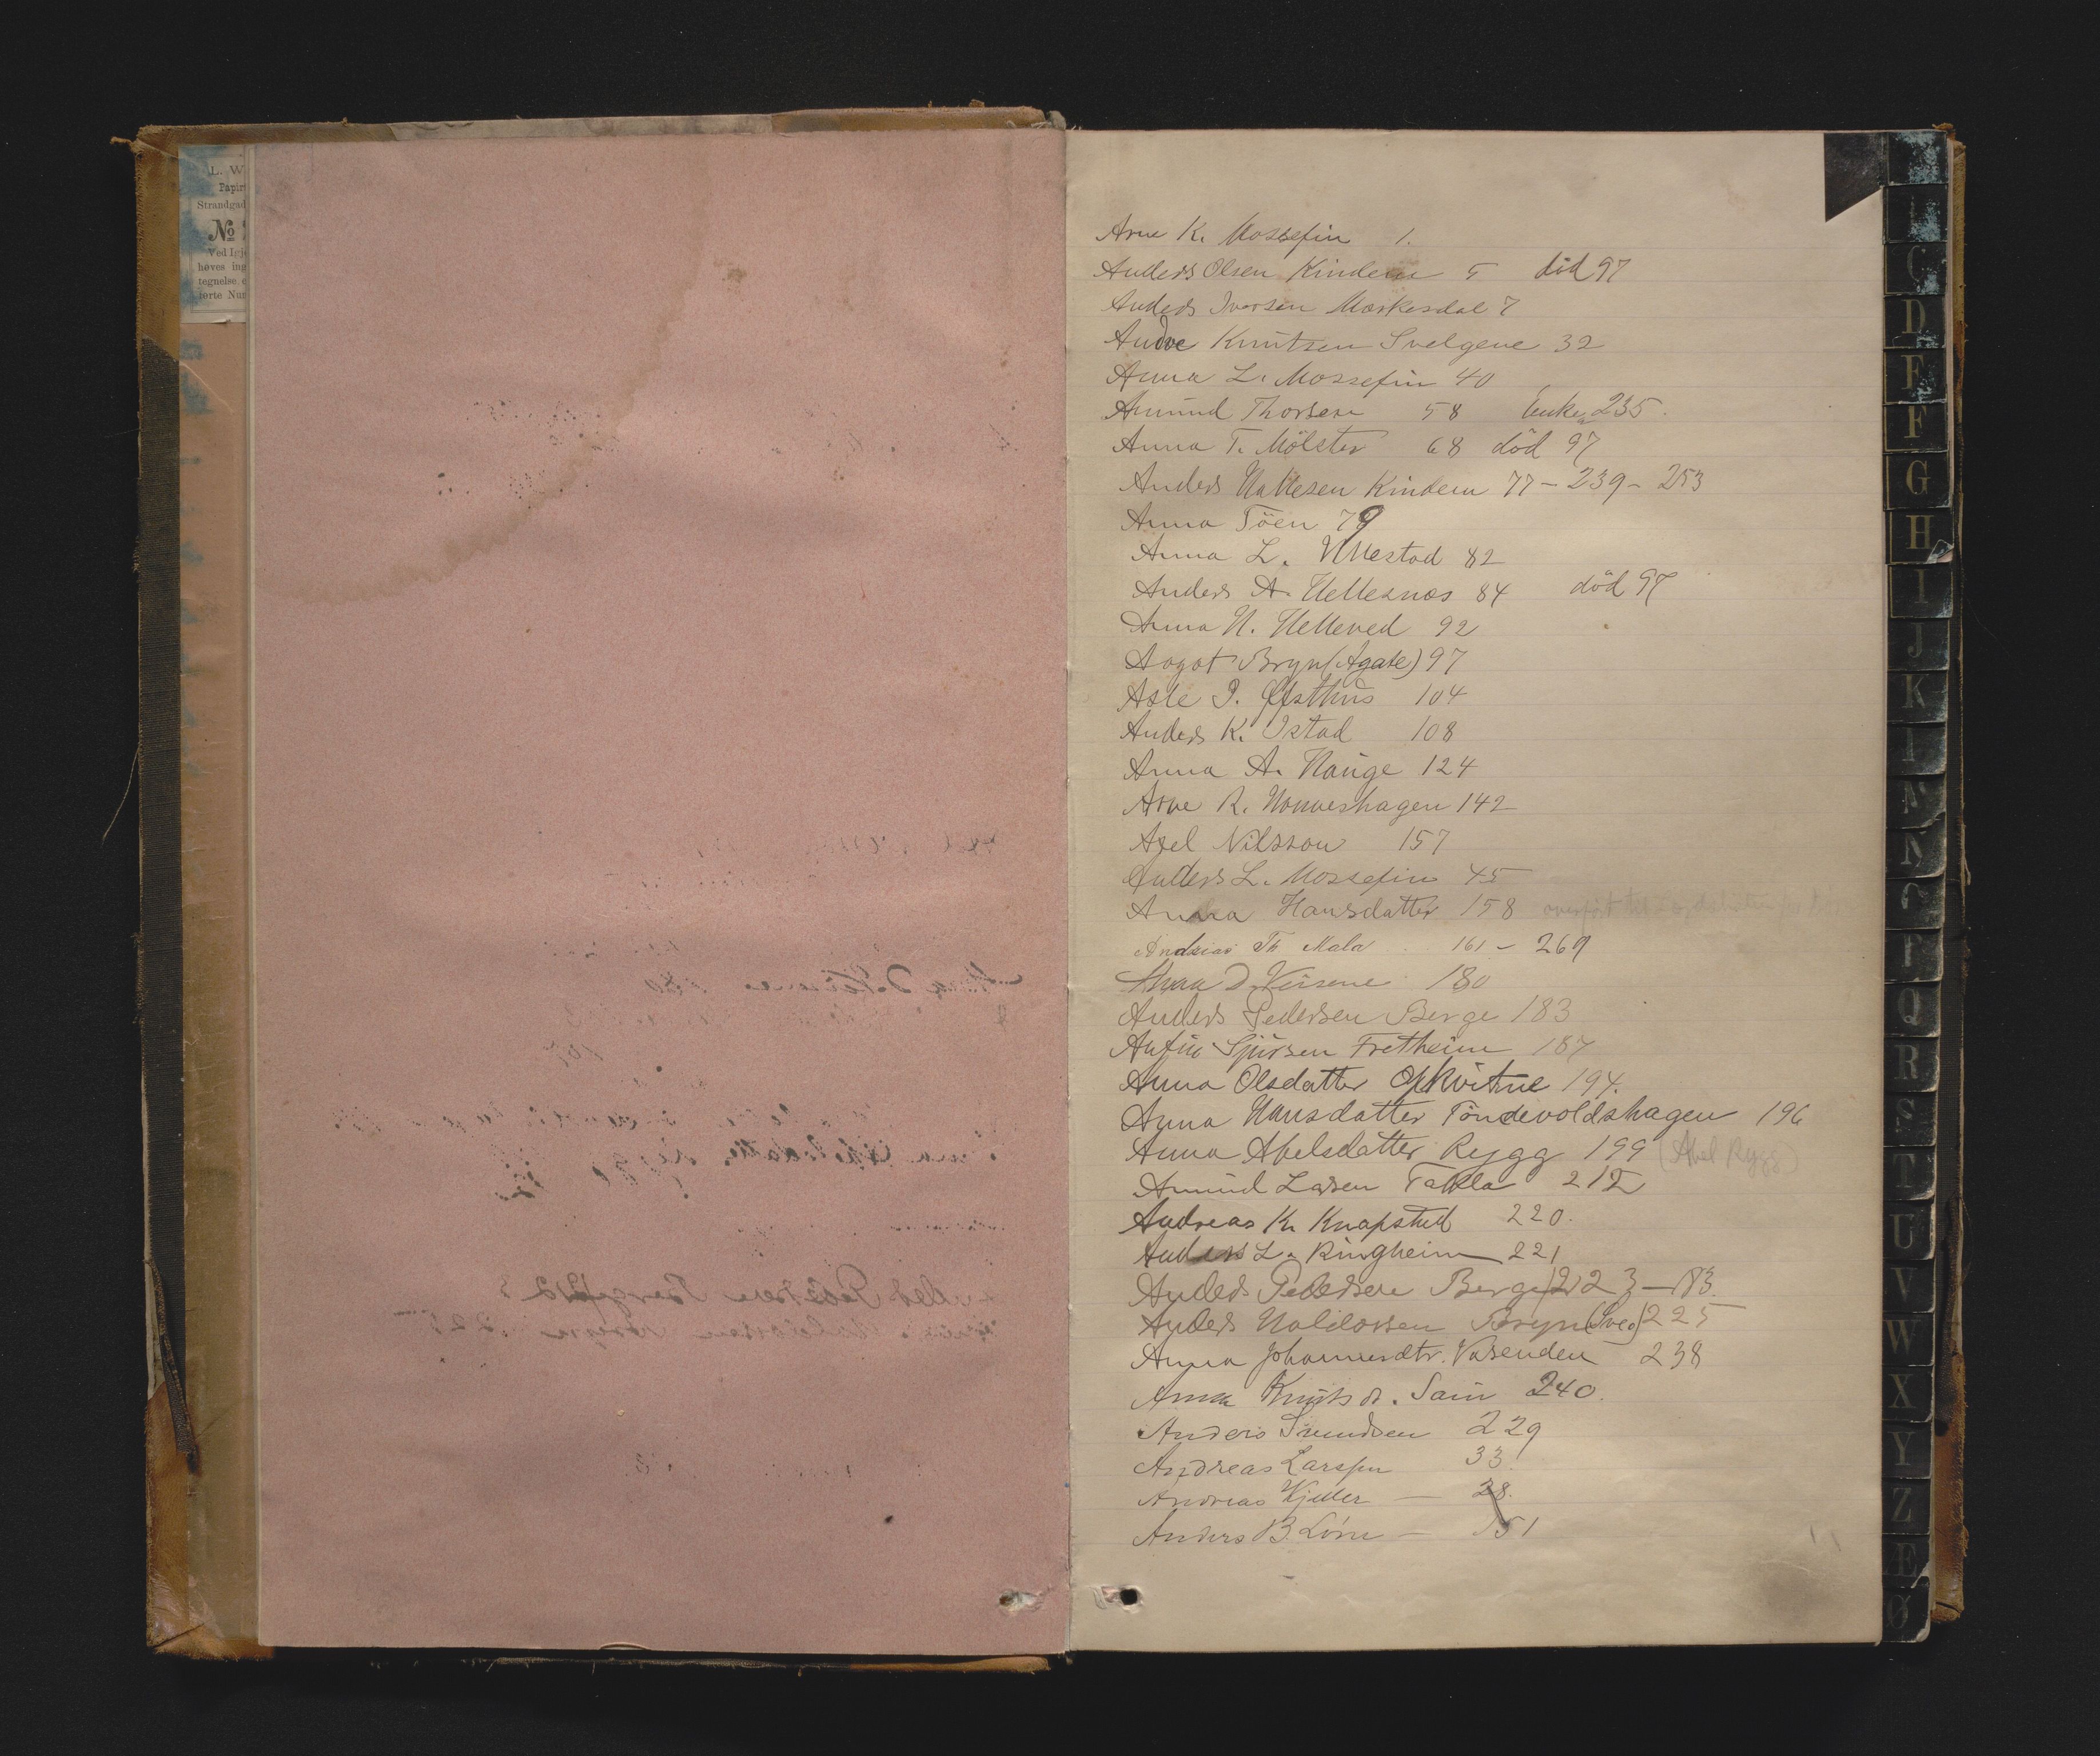 L. W
Papir
Strandgad
No
Ved Igje
høves ing
tegnelse
førte Nu
Arne K. Mossefin 1.
Anders Olsen Kindem 5 död 97
Anders Iversen Mørkesdal 7
Andve Knutsen Svelgene 32
Anna L. Mossefin 40
Amund Thorsen 58 Enke 235.
Anna T. Mölster 68 död 97
Anders Hallesen Kindem 77 - 239 - 253
Anna Töen 79
Anna L. Ullestad 82
Anders A. Hellesnæs 84 död 97
Anna N. Helleved 92
Aagot Bryn (Agate) 97
Asle I. Øfsthus 104
Anders K. Istad 108
Anna A. Hauge 124
Arne R. Nonneshagen 142
Axel Nilsson 157
Anders L. Mossefin 45
Anna Hansdatter 158 overført til
Andreas Th Mala 161 - 269
Anna D. 180
Anders Pedersen Berge 183
Anfin Sjursen Fretheim 187
Anna Olsdatter Opkvitne 194.
Anna Hansdatter Töndevoldshagen 196
Anna Abelsdatter Rygg 199 (Abel Rygg)
Amund Larsen Takla 212
Andreas K. Knapstad 220.
Anders L. Ringheim 221
Anders Pedersen Berge 223 - 183.
Anders Haldorsen Bryn 225
Anna Johannesdtr. Vasenden 238
Anna Knutsdr. Saue 240.
Anders Svendsen 229
Andreas Larssen 33.
Andreas Kjeller - 28.
Anders B. Löne - 151
C
D
E
F
G
H
I
J
K
L
M
N
O
P
Q
R
S
T
U
V
W
X
Y
Z
Æ
Ø